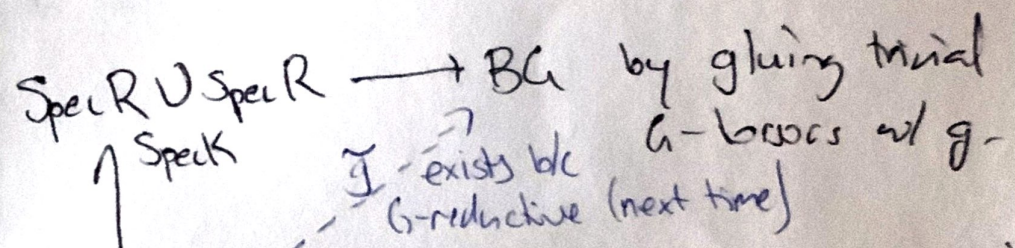 Spec R ∪ Spec R ⟶ BG by gluing trivial
Spec K G-torsors w/ g.
∃ exists b/c
G-reductive (next time)